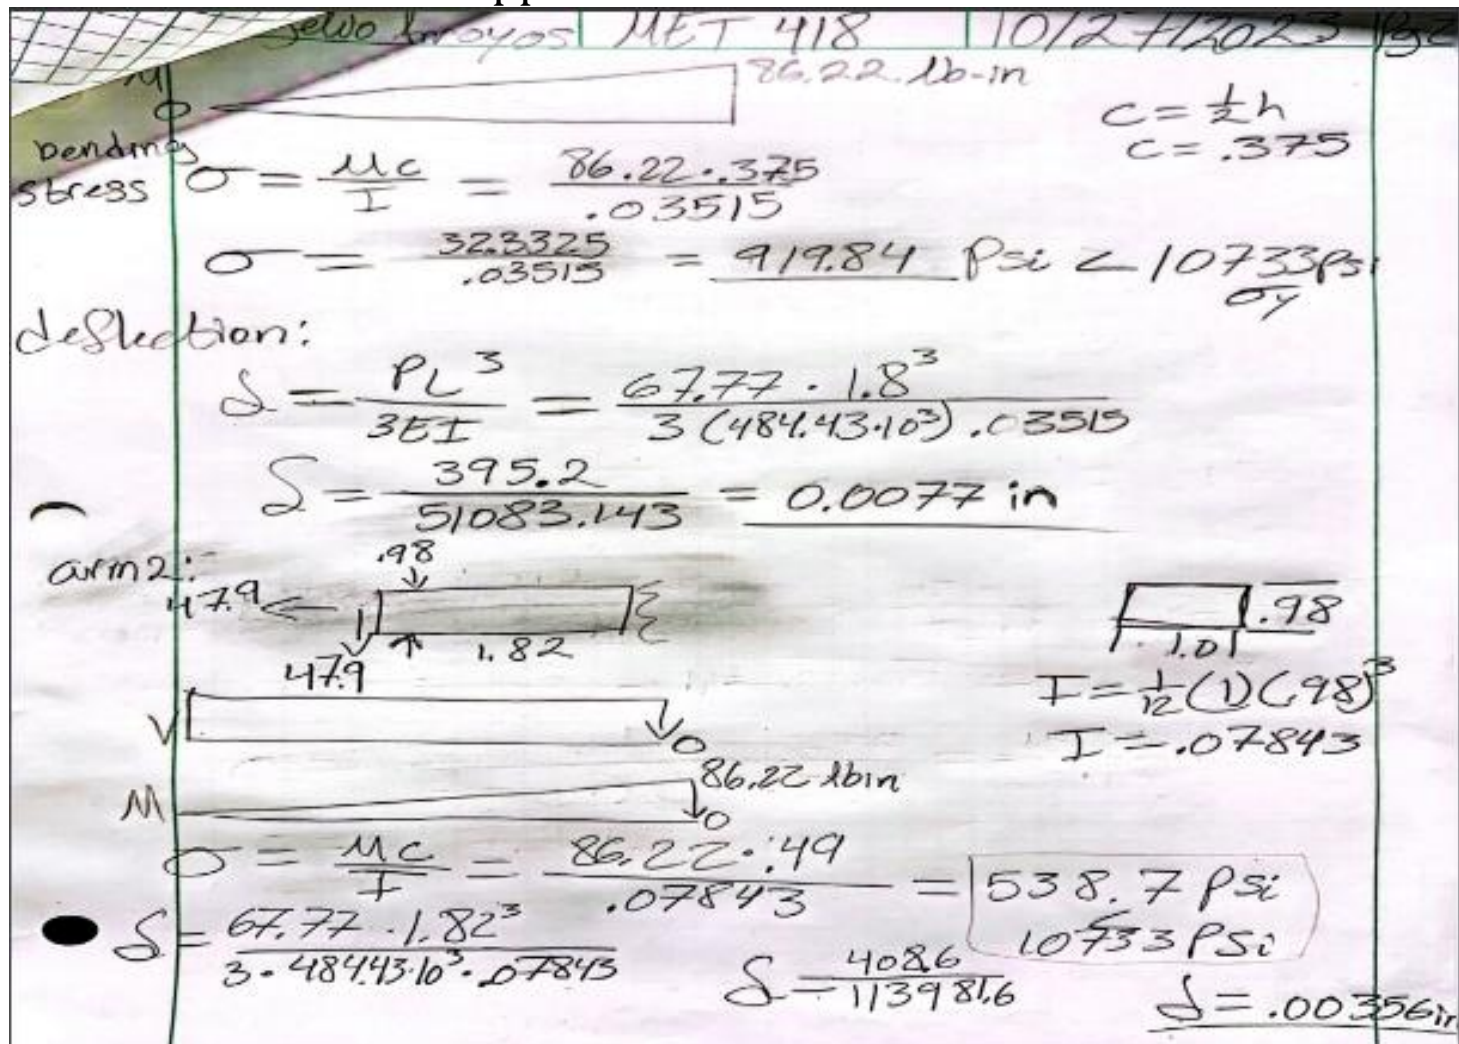 MET 418 10/27/2023 Pg2
M
O 86.22 lb-in
C = 1/2 h
C = .375
bending stress σ = Mc/I = 86.22 · .375 / .03515
σ = 32.3325 / .03515 = 919.84 Psi < 10733 psi
σy
deflection:
δ = PL³ / 3EI = 67.77 · 1.8³ / 3 (484.43·10³) .03515
δ = 395.2 / 51083.143 = 0.0077 in
arm2:
.98
47.9
1.82
47.9
.98
1.01
I = 1/12 (1)(.98)³
I = .07843
V
O
86.22 lbin
M
O
σ = Mc/I = 86.22 · .49 / .07843 = 538.7 Psi
<
10733 PSi
δ = 67.77 · 1.82³ / 3 · 484.43·10³ · .07843
δ = 408.6 / 113981.6
δ = .00356in